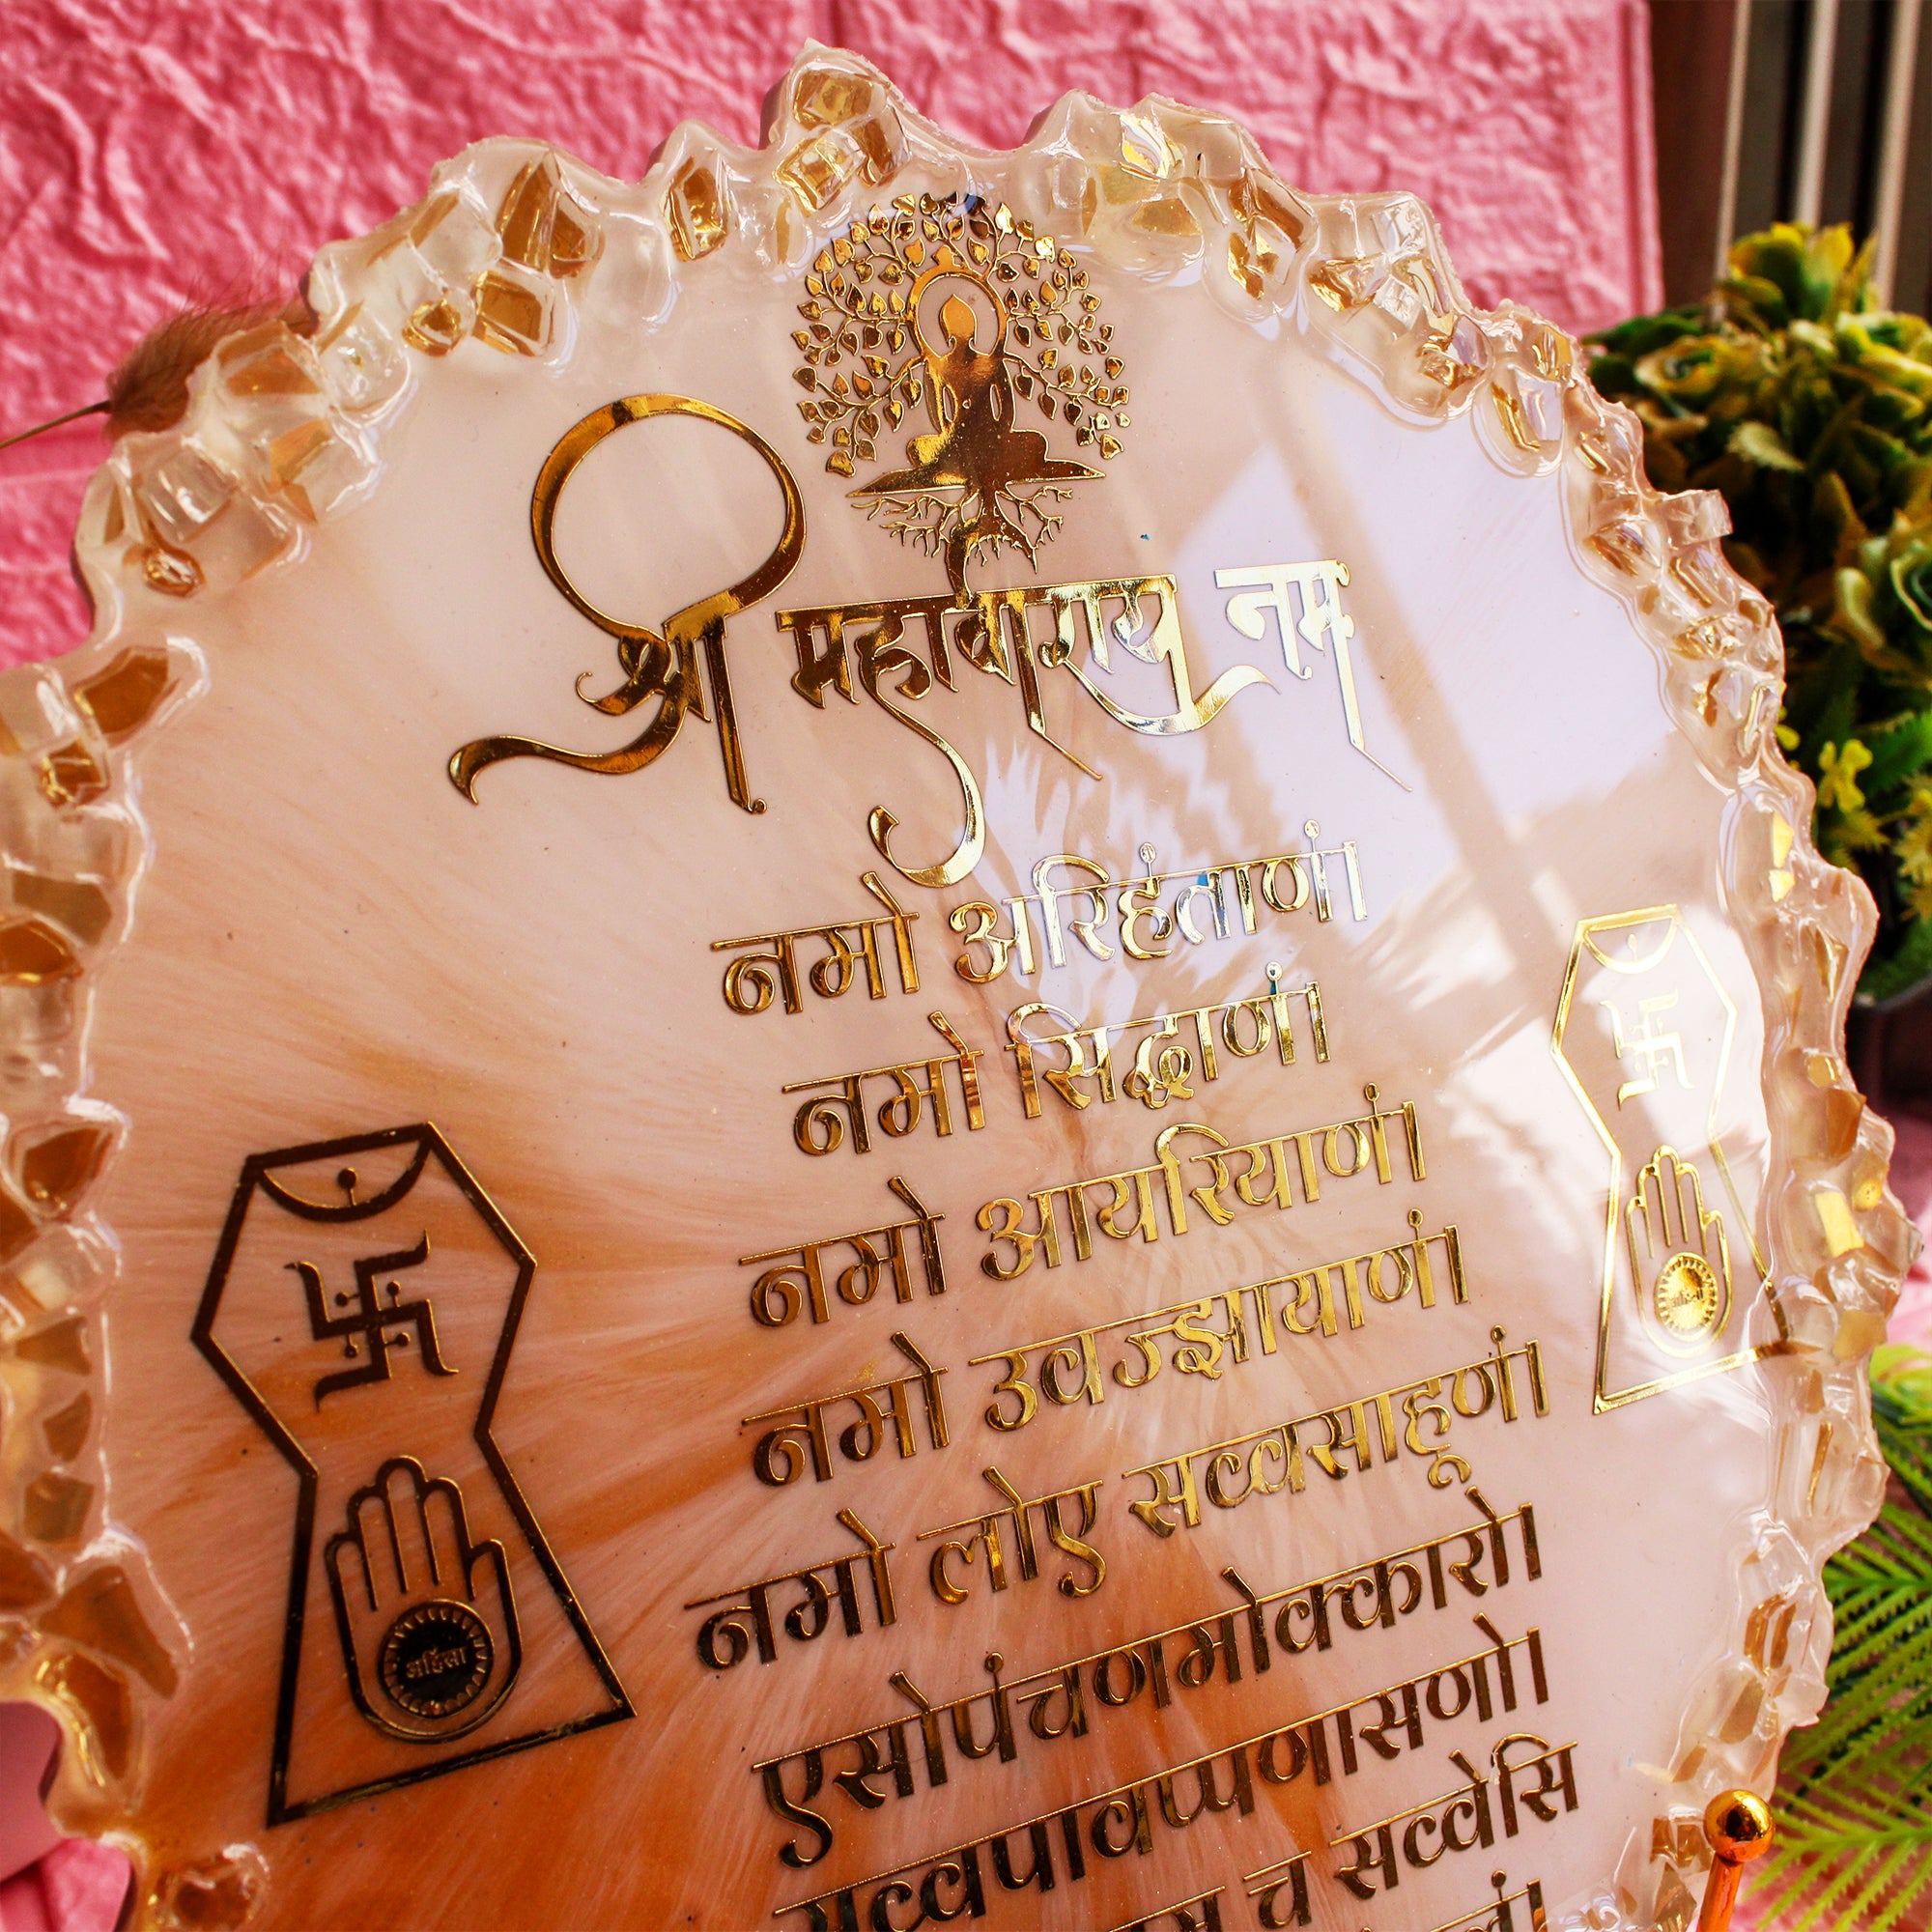 श्री महावीराय नम
नमो अरिहंताणं।
नमो सिद्धाणं।
नमो आयरियाणं।
नमो उवज्झायाणं।
नमो लोए सव्वसाहूणं।
एसोपंचणमोक्कारो।
सव्वपावप्पणासणो।
च सव्वेसिं
अहिंसा
अहिंसा